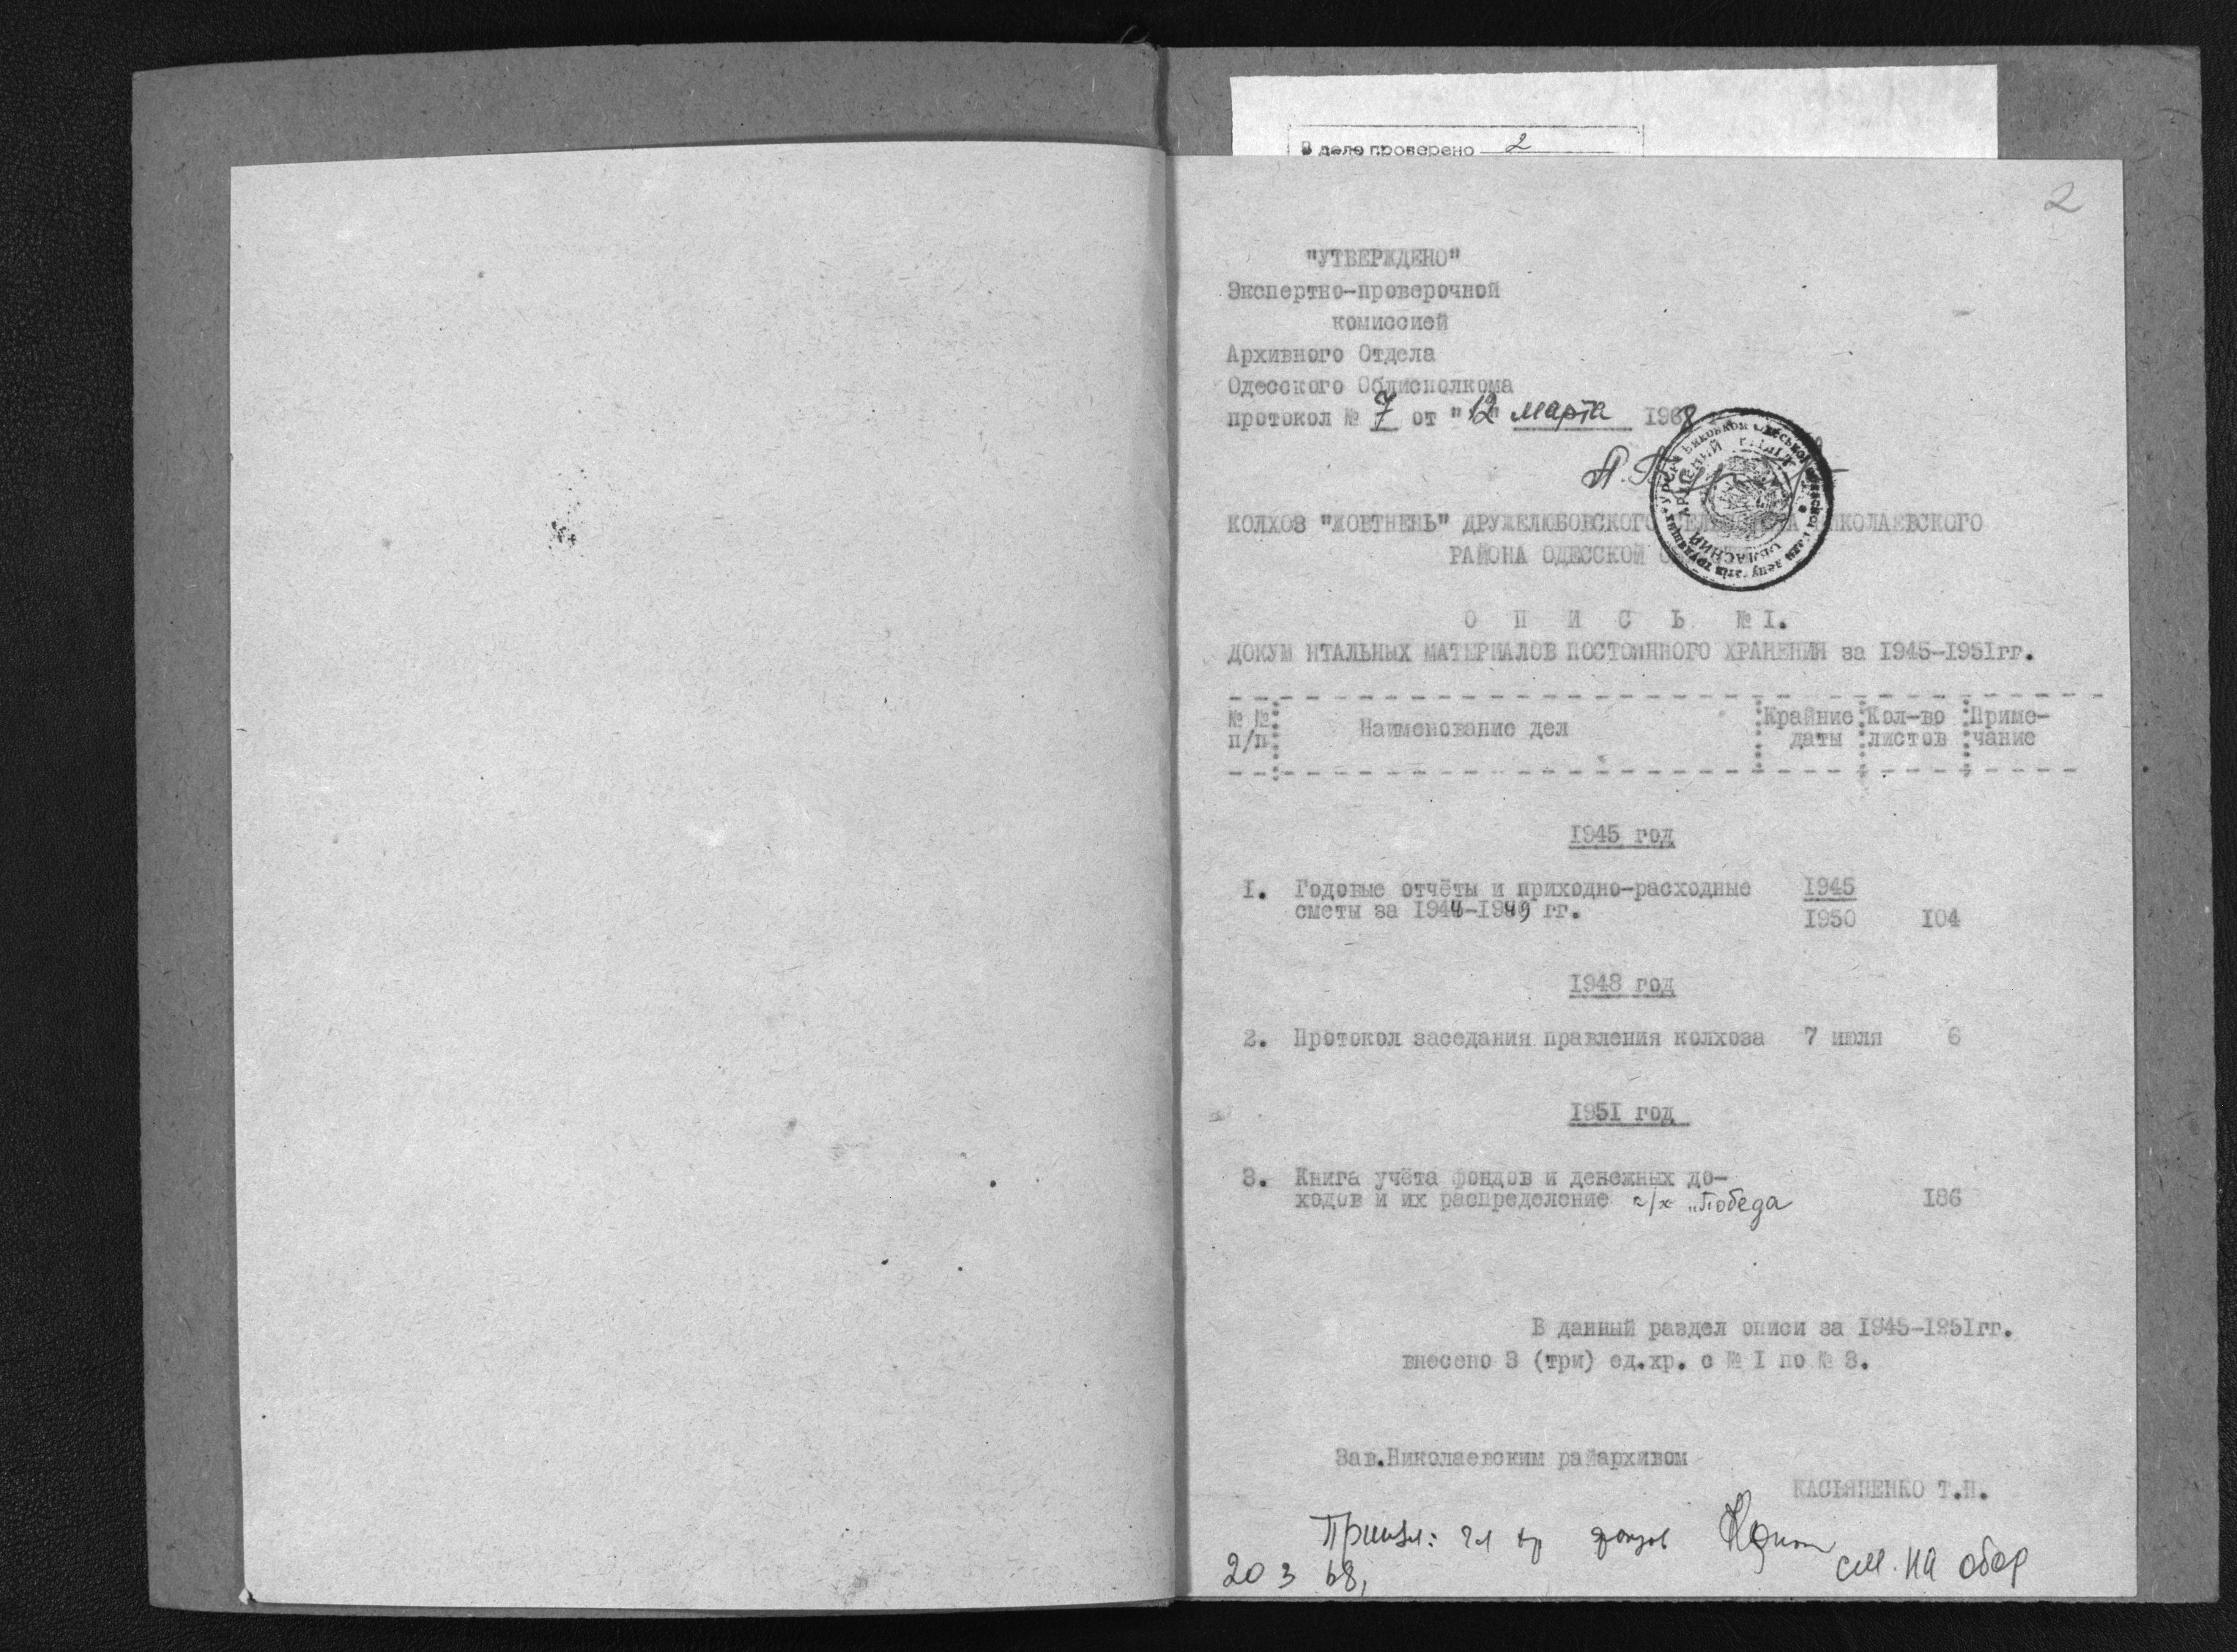 В деле проверено 2
2
"УТВЕРЖДЕНО"
Экспертно-проверочной
комиссией
Архивного Отдела
Одесского Облисполкома
протокол № 7 от "12" марта 1968
КОЛХОЗ "ЖОВТНЕНЬ" ДРУЖЕЛЮБОВСКОГО НИКОЛАЕВСКОГО
РАЙОНА ОДЕССКОЙ
О П И С Ь № I.
ДОКУМ НТАЛЬНЫХ МАТЕРИАЛОВ ПОСТОЯННОГО ХРАНЕНИЯ за 1945-1951гг.
№ № Наименование дел Крайние Кол-во Приме-
п/п даты листов чание
1945 год
I. Годовые отчёты и приходно-расходные 1945
сметы за 1944-1949 гг. 1950 104
1948 год
2. Протокол заседания правления колхоза 7 июля 6
1951 год
3. Книга учёта фондов и денежных до-
ходов и их распределение с/х "Победа 186
В данный раздел описи за 1945-1951гг.
внесено 3 (три) ед.хр. с № I по № 3.
Зав.Николаевским райархивом
КАСЬЯНЕНКО Т.Н.
фондов
20 3 68,
см. на обор